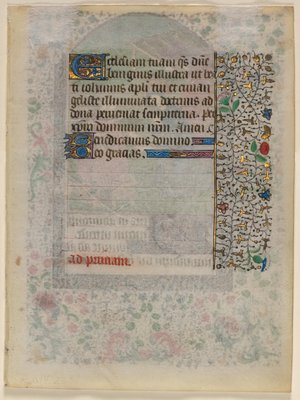 Ecclesiam tuam qs dne
benignus illustra ut bea
ti iohannis apli tui et euuan
geliste illuminata doctrinis ad
dona perueniat sempiterna. Per
xpm dominum nrm. Amen.
Benedicamus domino
Deo gracias.
ad primam.